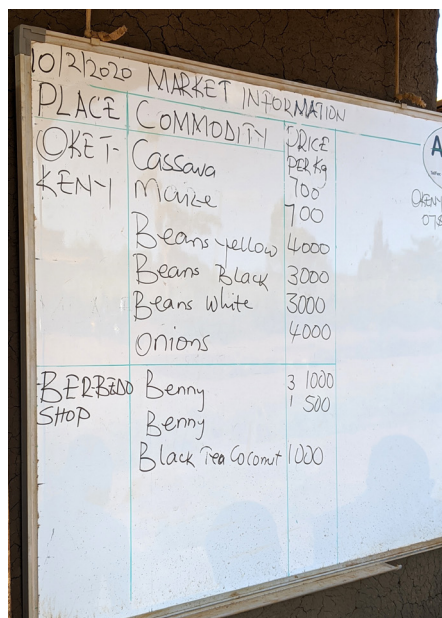 10/2/2020 MARKET INFORMATION
PLACE COMMODITY PRICE PER Kg
OKET-KENYI Cassava 700
Maize 700
Beans yellow 4000
Beans Black 3000
Beans White 3000
Onions 4000
BER-BEDO SHOP Benny 3 1000
Benny 1 500
Black Tea Coconut 1000
A